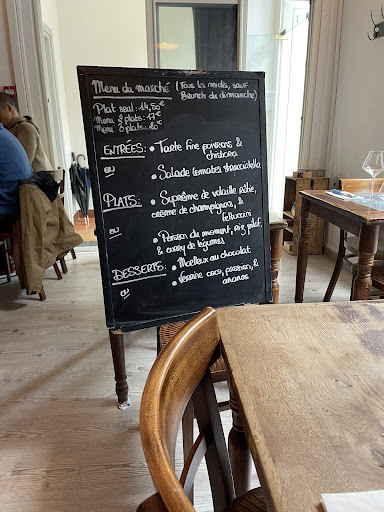 Menu du marché (Tous les midis, sauf
Brunch du dimanche)
Plat seul: 14,50€
Menu 2 plats: 17€
Menu 3 plats: 20€
ENTRÉES: • Tarte fine poivrons &
chistora
ou
• Salade tomates stracciatella
PLATS: • Suprême de volaille rôtie,
crème de champignons, &
fettuccini
ou
• Poisson du moment, riz pilaf,
& curry de légumes
DESSERTS: • Moelleux au chocolat
ou
• Verrine coco, passion, &
ananas